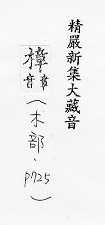 精嚴新集大藏音
樟音章(木部·p725)